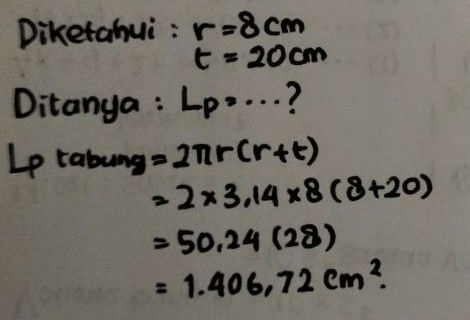 Diketahui : r = 8 cm
t = 20 cm
Ditanya : Lp = ...?
Lp tabung = 2πr(r+t)
= 2 × 3,14 × 8 (8+20)
= 50,24 (28)
= 1.406,72 cm².